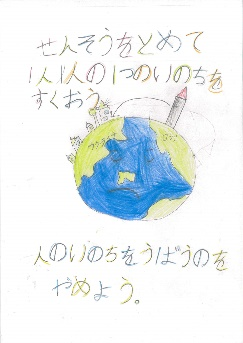 せんそうをとめて
1人1人の1つのいのちを
すくおう。
人のいのちをうばうのを
やめよう。